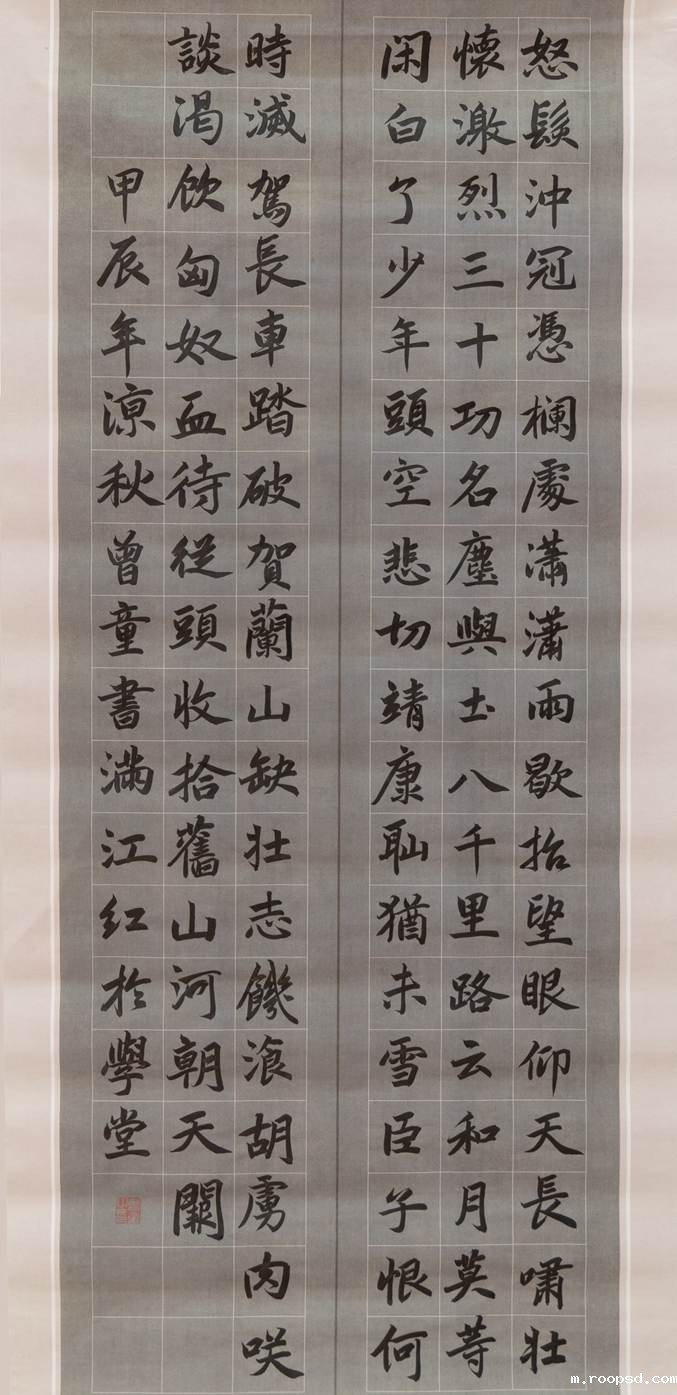 怒髮沖冠憑欄處瀟瀟雨歇抬望眼仰天長嘯壯
懷激烈三十功名塵與土八千里路云和月莫等
閑白了少年頭空悲切靖康耻猶未雪臣子恨何
時滅駕長車踏破賀蘭山缺壯志饑湌胡虜肉笑
談渴飲匈奴血待從頭收拾舊山河朝天闕
甲辰年涼秋曾童書滿江红於學堂
m.roopsd.com